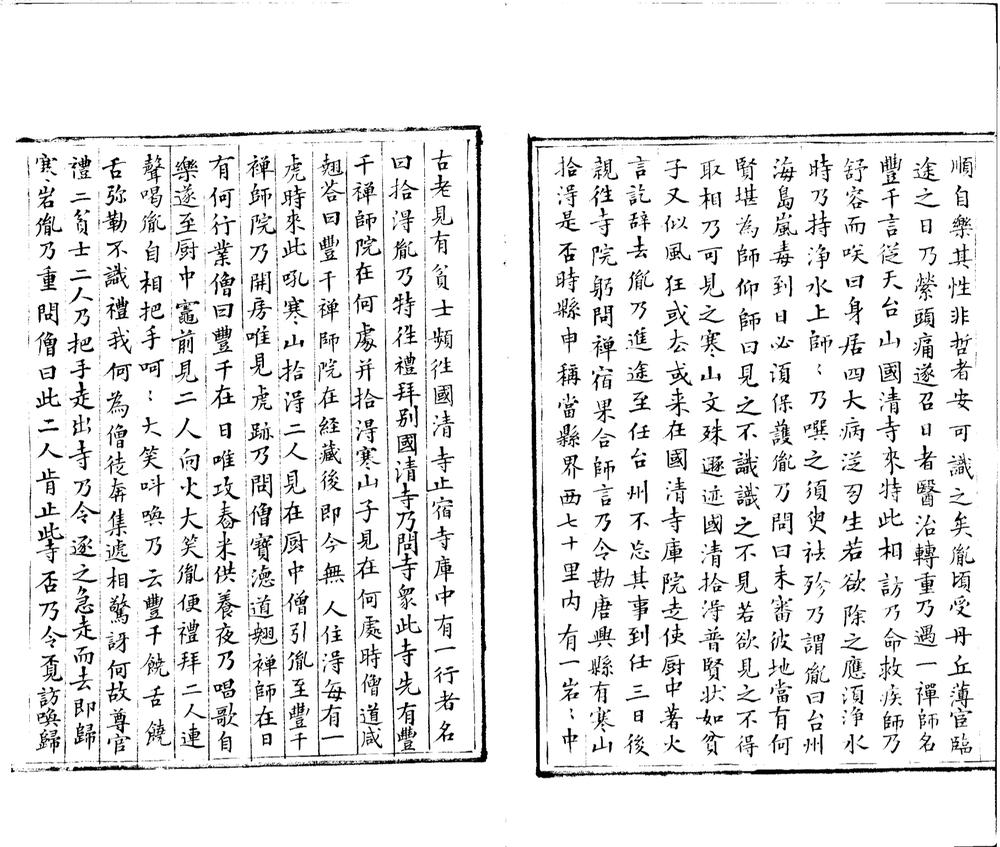 順自樂其性非哲者安可識之矣胤頃受丹丘薄宦臨
途之日乃縈頭痛遂召日者醫治轉重乃遇一禪師名
豐干言從天台山國清寺來特此相訪乃命救疾師乃
舒容而咲曰身居四大病從幻生若欲除之應須淨水
時乃持淨水上師〻乃噀之須臾祛殄乃謂胤曰台州
海島嵐毒到日必須保護胤乃問曰未審彼地當有何
賢堪為師仰師曰見之不識識之不見若欲見之不得
取相乃可見之寒山文殊遯迹國清拾得普賢狀如貧
子又似風狂或去或来在國清寺庫院走使厨中著火
言訖辭去胤乃進途至任台州不忘其事到任三日後
親徃寺院躬問禅宿果合師言乃令勘唐興縣有寒山
拾得是否時縣申稱當縣界西七十里内有一岩〻中
古老見有貧士頻徃國清寺止宿寺庫中有一行者名
曰拾得胤乃特徃禮拜别國清寺乃問寺衆此寺先有豐
干禪師院在何處并拾得寒山子見在何處時僧道咸
翹荅曰豐干禅師院在経藏後即今無人住得每有一
虎時來此吼寒山拾得二人見在厨中僧引胤至豐干
禅師院乃開房唯見虎跡乃問僧寶德道翹禅師在日
有何行業僧曰豐干在日唯攻舂米供養夜乃唱歌自
樂遂至厨中竈前見二人向火大笑胤便禮拜二人連
聲喝胤自相把手呵〻大笑呌喚乃云豐干饒舌饒
舌弥勒不識禮我何為僧徒奔集遞相驚訝何故尊官
禮二貧士二人乃把手走出寺乃令逐之急走而去即歸
寒岩胤乃重問僧曰此二人肯止此寺否乃令覓訪喚歸